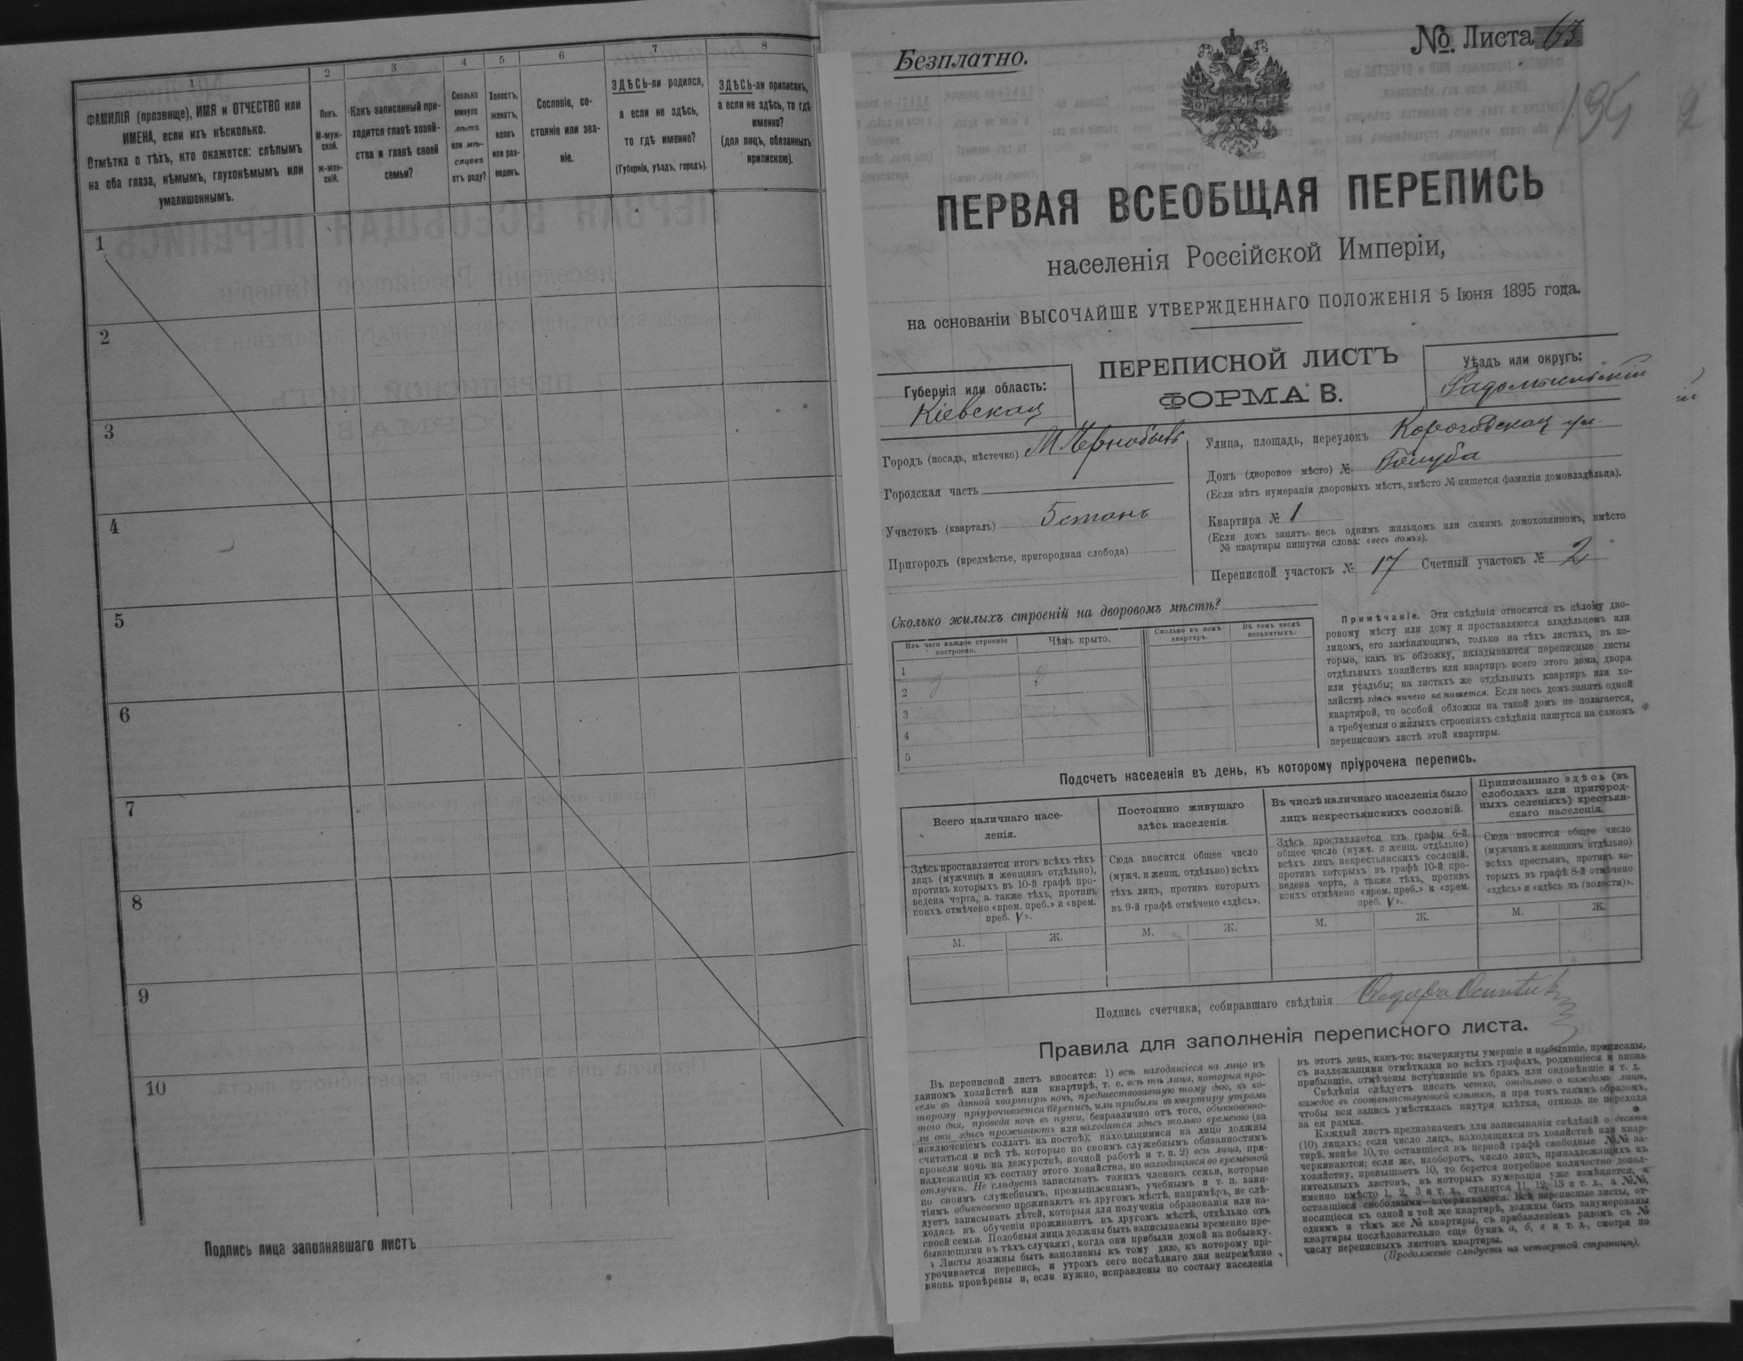 1
ФАМИЛІЯ (прозвище), ИМЯ и ОТЧЕСТВО или
ИМЕНА, если ихъ нѣсколько.
Отмѣтка о тѣхъ, кто окажется: слѣпымъ
на оба глаза, нѣмымъ, глухонѣмымъ или
умалишеннымъ.
2
Полъ.
М-муж-
ской.
Ж-жен-
скій.
3
Какъ записанный при-
ходится главѣ хозяй-
ства и главѣ своей
семьи?
4
Сколько
минуло
лѣтъ
или мѣ-
сяцевъ
отъ роду?
5
Холостъ,
женатъ,
вдовъ
или раз-
веденъ.
6
Сословіе, со-
стояніе или зва-
ніе.
7
ЗДѢСЬ-ли родился,
а если не здѣсь,
то гдѣ именно?
(Губернія, уѣздъ, городъ).
8
ЗДѢСЬ-ли приписанъ,
а если не здѣсь, то гдѣ
именно?
(для лицъ, обязанныхъ
припискою).
1
2
3
4
5
6
7
8
9
10
Подпись лица заполнявшаго листъ
Безплатно.
№ Листа 63
ПЕРВАЯ ВСЕОБЩАЯ ПЕРЕПИСЬ
населенія Россійской Имперіи,
на основаніи ВЫСОЧАЙШЕ УТВЕРЖДЕННАГО ПОЛОЖЕНІЯ 5 Іюня 1895 года.
Губернія или область:
Кіевская
ПЕРЕПИСНОЙ ЛИСТЪ
ФОРМА В.
Уѣздъ или округъ:
Радомысльскій
Городъ (посадъ, мѣстечко) М. Чернобыль
Городская часть
Участокъ (кварталъ) 5 станъ
Пригородъ (предмѣстье, пригородная слобода)
Улица, площадь, переулокъ Корогодская ул.
Домъ (дворовое мѣсто) № Голуба
(Если нѣтъ нумераціи дворовыхъ мѣстъ, вмѣсто № пишется фамилія домовладѣльца).
Квартира № 1
(Если домъ занятъ весь однимъ жильцомъ или самимъ домохозяиномъ, вмѣсто
№ квартиры пишутся слова: «весь домъ»).
Переписной участокъ № 17 Счетный участокъ № 2
Сколько жилыхъ строеній на дворовомъ мѣстѣ?
Изъ чего каждое строеніе
построено.
Чѣмъ крыто.
Сколько въ немъ
квартиръ.
Въ томъ числѣ
незанятыхъ.
1
2
3
4
5
Примѣчаніе. Эти свѣдѣнія относятся къ цѣлому дво-
ровому мѣсту или дому и проставляются владѣльцемъ или
лицомъ, его замѣняющимъ, только на тѣхъ листахъ, въ ко-
торые, какъ въ обложку, вкладываются переписные листы
отдѣльныхъ хозяйствъ или квартиръ всего этого дома, двора
или усадьбы; на листахъ же отдѣльныхъ квартиръ или хо-
зяйствъ здѣсь ничего не пишется. Если весь домъ занятъ одной
квартирой, то особой обложки на такой домъ не полагается,
а требуемыя о жилыхъ строеніяхъ свѣдѣнія пишутся на самомъ
переписномъ листѣ этой квартиры.
Подсчетъ населенія въ день, къ которому пріурочена перепись.
Всего наличнаго насе-
ленія.
Здѣсь проставляется итогъ всѣхъ тѣхъ
лицъ (мужчинъ и женщинъ отдѣльно),
противъ которыхъ въ 10-й графѣ про-
ведена черта, а также тѣхъ, противъ
коихъ отмѣчено «врем. преб.» и «врем.
преб. V».
М. Ж.
Постоянно живущаго
здѣсь населенія.
Сюда вносится общее число
(мужч. и женщ. отдѣльно) всѣхъ
тѣхъ лицъ, противъ которыхъ
въ 9-й графѣ отмѣчено «здѣсь».
М. Ж.
Въ числѣ наличнаго населенія было
лицъ некрестьянскихъ сословій.
Здѣсь проставляется изъ графы 6-й
общее число (мужч. и женщ. отдѣльно)
всѣхъ лицъ некрестьянскихъ сословій,
противъ которыхъ въ графѣ 10-й про-
ведена черта, а также тѣхъ, противъ
коихъ отмѣчено «врем. преб.» и «врем.
преб. V».
М. Ж.
Приписаннаго здѣсь (въ
слободахъ или пригород-
ныхъ селеніяхъ) крестьян-
скаго населенія.
Сюда вносится общее число
(мужчинъ и женщинъ отдѣльно)
всѣхъ крестьянъ, противъ ко-
торыхъ въ графѣ 8-й отмѣчено
«здѣсь» и «здѣсь въ (волости)».
М. Ж.
Подпись счетчика, собиравшаго свѣдѣнія
Правила для заполненія переписного листа.
Въ переписной листъ вносятся: 1) всѣ находящіеся на лицо въ
данномъ хозяйствѣ или квартирѣ, т. е. всѣ тѣ лица, которыя про-
вели въ данной квартирѣ ночь, предшествовавшую тому дню, къ ко-
торому пріурочивается перепись, или прибыли въ квартиру утромъ
того дня, проведя ночь въ пути, безразлично отъ того, обыкновенно-
ли они здѣсь проживаютъ или находятся здѣсь только временно (за
исключеніемъ солдатъ на постоѣ); находящимися на лицо должны
считаться и всѣ тѣ, которые по своимъ служебнымъ обязанностямъ
провели ночь на дежурствѣ, ночной работѣ и т. п. 2) всѣ лица, при-
надлежащія къ составу этого хозяйства, но находящіяся во временной
отлучкѣ. Не слѣдуетъ записывать такихъ членовъ семьи, которые
по своимъ служебнымъ, промышленнымъ, учебнымъ и т. п. заня-
тіямъ обыкновенно проживаютъ въ другомъ мѣстѣ, напримѣръ, не слѣ-
дуетъ записывать дѣтей, которыя для полученія образованія или на-
ходясь въ обученіи проживаютъ въ другомъ мѣстѣ, отдѣльно отъ
своей семьи. Подобныя лица должны быть записываемы временно пре-
бывающими въ тѣхъ случаяхъ, когда они прибыли домой на побывку.
Листы должны быть заполнены къ тому дню, къ которому прі-
урочивается перепись, и утромъ сего послѣдняго дня непремѣнно
вновь провѣрены и, если нужно, исправлены по составу населенія
въ этотъ день, какъ-то: вычеркнуты умершіе и выбывшіе, приписаны,
съ надлежащими отмѣтками во всѣхъ графахъ, родившіеся и вновь
прибывшіе, отмѣчены вступившіе въ бракъ или овдовѣвшіе и т. д.
Свѣдѣнія слѣдуетъ писать четко, отдѣльно о каждомъ лицѣ,
каждое въ соотвѣтствующей клѣткѣ, и при томъ такимъ образомъ,
чтобы вся запись умѣстилась внутри клѣтки, отнюдь не переходя
за ея рамки.
Каждый листъ предназначенъ для записыванія свѣдѣній о десяти
(10) лицахъ; если число лицъ, находящихся въ хозяйствѣ или квар-
тирѣ, менѣе 10, то оставшіеся въ первой графѣ свободные №№ за-
черкиваются; если же, наоборотъ, число лицъ, принадлежащихъ къ
хозяйству, превышаетъ 10, то берется потребное количество допол-
нительныхъ листовъ, въ которыхъ нумерація уже измѣняется, а
именно вмѣсто 1, 2, 3 и т. д., ставится 11, 12, 13 и т. д., а №№,
оставшіеся свободными—зачеркиваются. Всѣ переписные листы, от-
носящіеся къ одной и той же квартирѣ, должны быть занумерованы
однимъ и тѣмъ же № квартиры, съ прибавленіемъ рядомъ съ №
квартиры послѣдовательно еще буквъ а, б, в и т. д., смотря по
числу переписныхъ листовъ квартиры.
(Продолженіе слѣдуетъ на четвертой страницѣ).